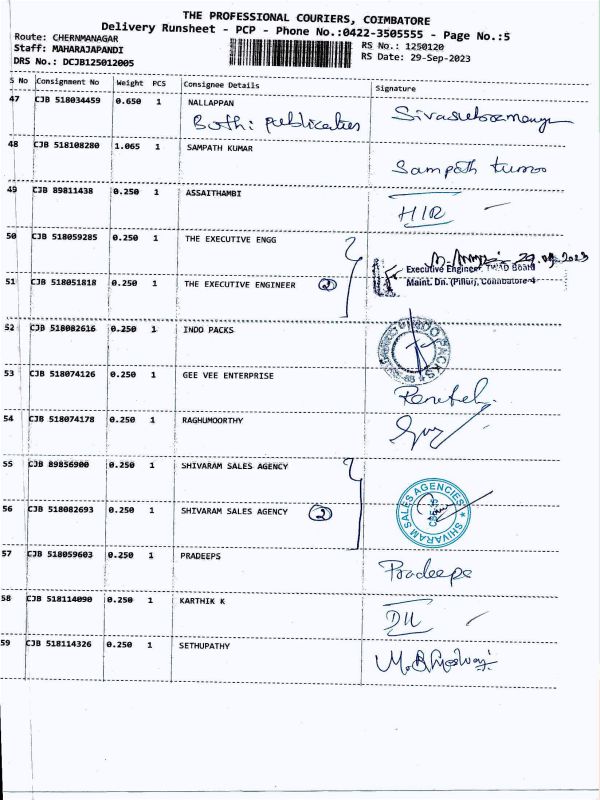 THE PROFESSIONAL COURIERS, COIMBATORE
Delivery Runsheet - PCP - Phone No.:0422-3505555 - Page No.:5
Route: CHERNMANAGAR
RS No.: 1250120
Staff: MAHARAJAPANDI
RS Date: 29-Sep-2023
DRS No.: DCJB125012005
S No Consignment No Weight PCS Consignee Details Signature
47 CJB 518034459 0.650 1 NALLAPPAN
Bothi publication
48 CJB 518108280 1.065 1 SAMPATH KUMAR
Sampath kumar
49 CJB 89811438 0.250 1 ASSAITHAMBI
H/R
50 CJB 518059285 0.250 1 THE EXECUTIVE ENGG
29.09.2023
Executive Engineer, TWAD Board
51 CJB 518051818 0.250 1 THE EXECUTIVE ENGINEER 2
Maint. Dn. (Pillur), Coimbatore-4
52 CJB 518082616 0.250 1 INDO PACKS
INDO PACKS
53 CJB 518074126 0.250 1 GEE VEE ENTERPRISE
54 CJB 518074178 0.250 1 RAGHUMOORTHY
55 CJB 89856900 0.250 1 SHIVARAM SALES AGENCY
56 CJB 518082693 0.250 1 SHIVARAM SALES AGENCY 2
SHIVARAM SALES AGENCIES
57 CJB 518059603 0.250 1 PRADEEPS
Pradeeps
58 CJB 518114090 0.250 1 KARTHIK K
59 CJB 518114326 0.250 1 SETHUPATHY